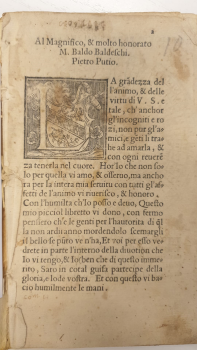 Al Magnifico, & molto honorato
M. Baldo Baldeschi.
Pietro Putio.
LA grãdezza del
l'animo, & delle
virtù di V. S. e
tale, ch'anchor
gl'incogniti e ro
zi, non pur gl'a-
mici e gẽti li trahe
ad amarla, & con
ogni reuerẽ
za tenerla nel cuore. Hor'Io che non so-
lo per quella vi amo, & osseruo, ma anchora
per la intera mia seruitu con tutti gl'af-
fetti de l'animo vi nutrisco, & honoro,
Con l'humilta ch'Io posso e deuo, Questo
mio picciol libretto vi dono, con fermo
pensiero ch'e le genti per l'hautorita di
non ardiranno mordendolo scemargli
il bello se pũto ve n'ha, Et voi per esso ve-
drete in parte l'interno della diuotiõ che
Io vi tengo, & Io ben che di questo immeri-
to, Saro in cotal guisa partecipe della
gloria, e lode vostra. Et con questo vi bas-
cio humilmente le mani.